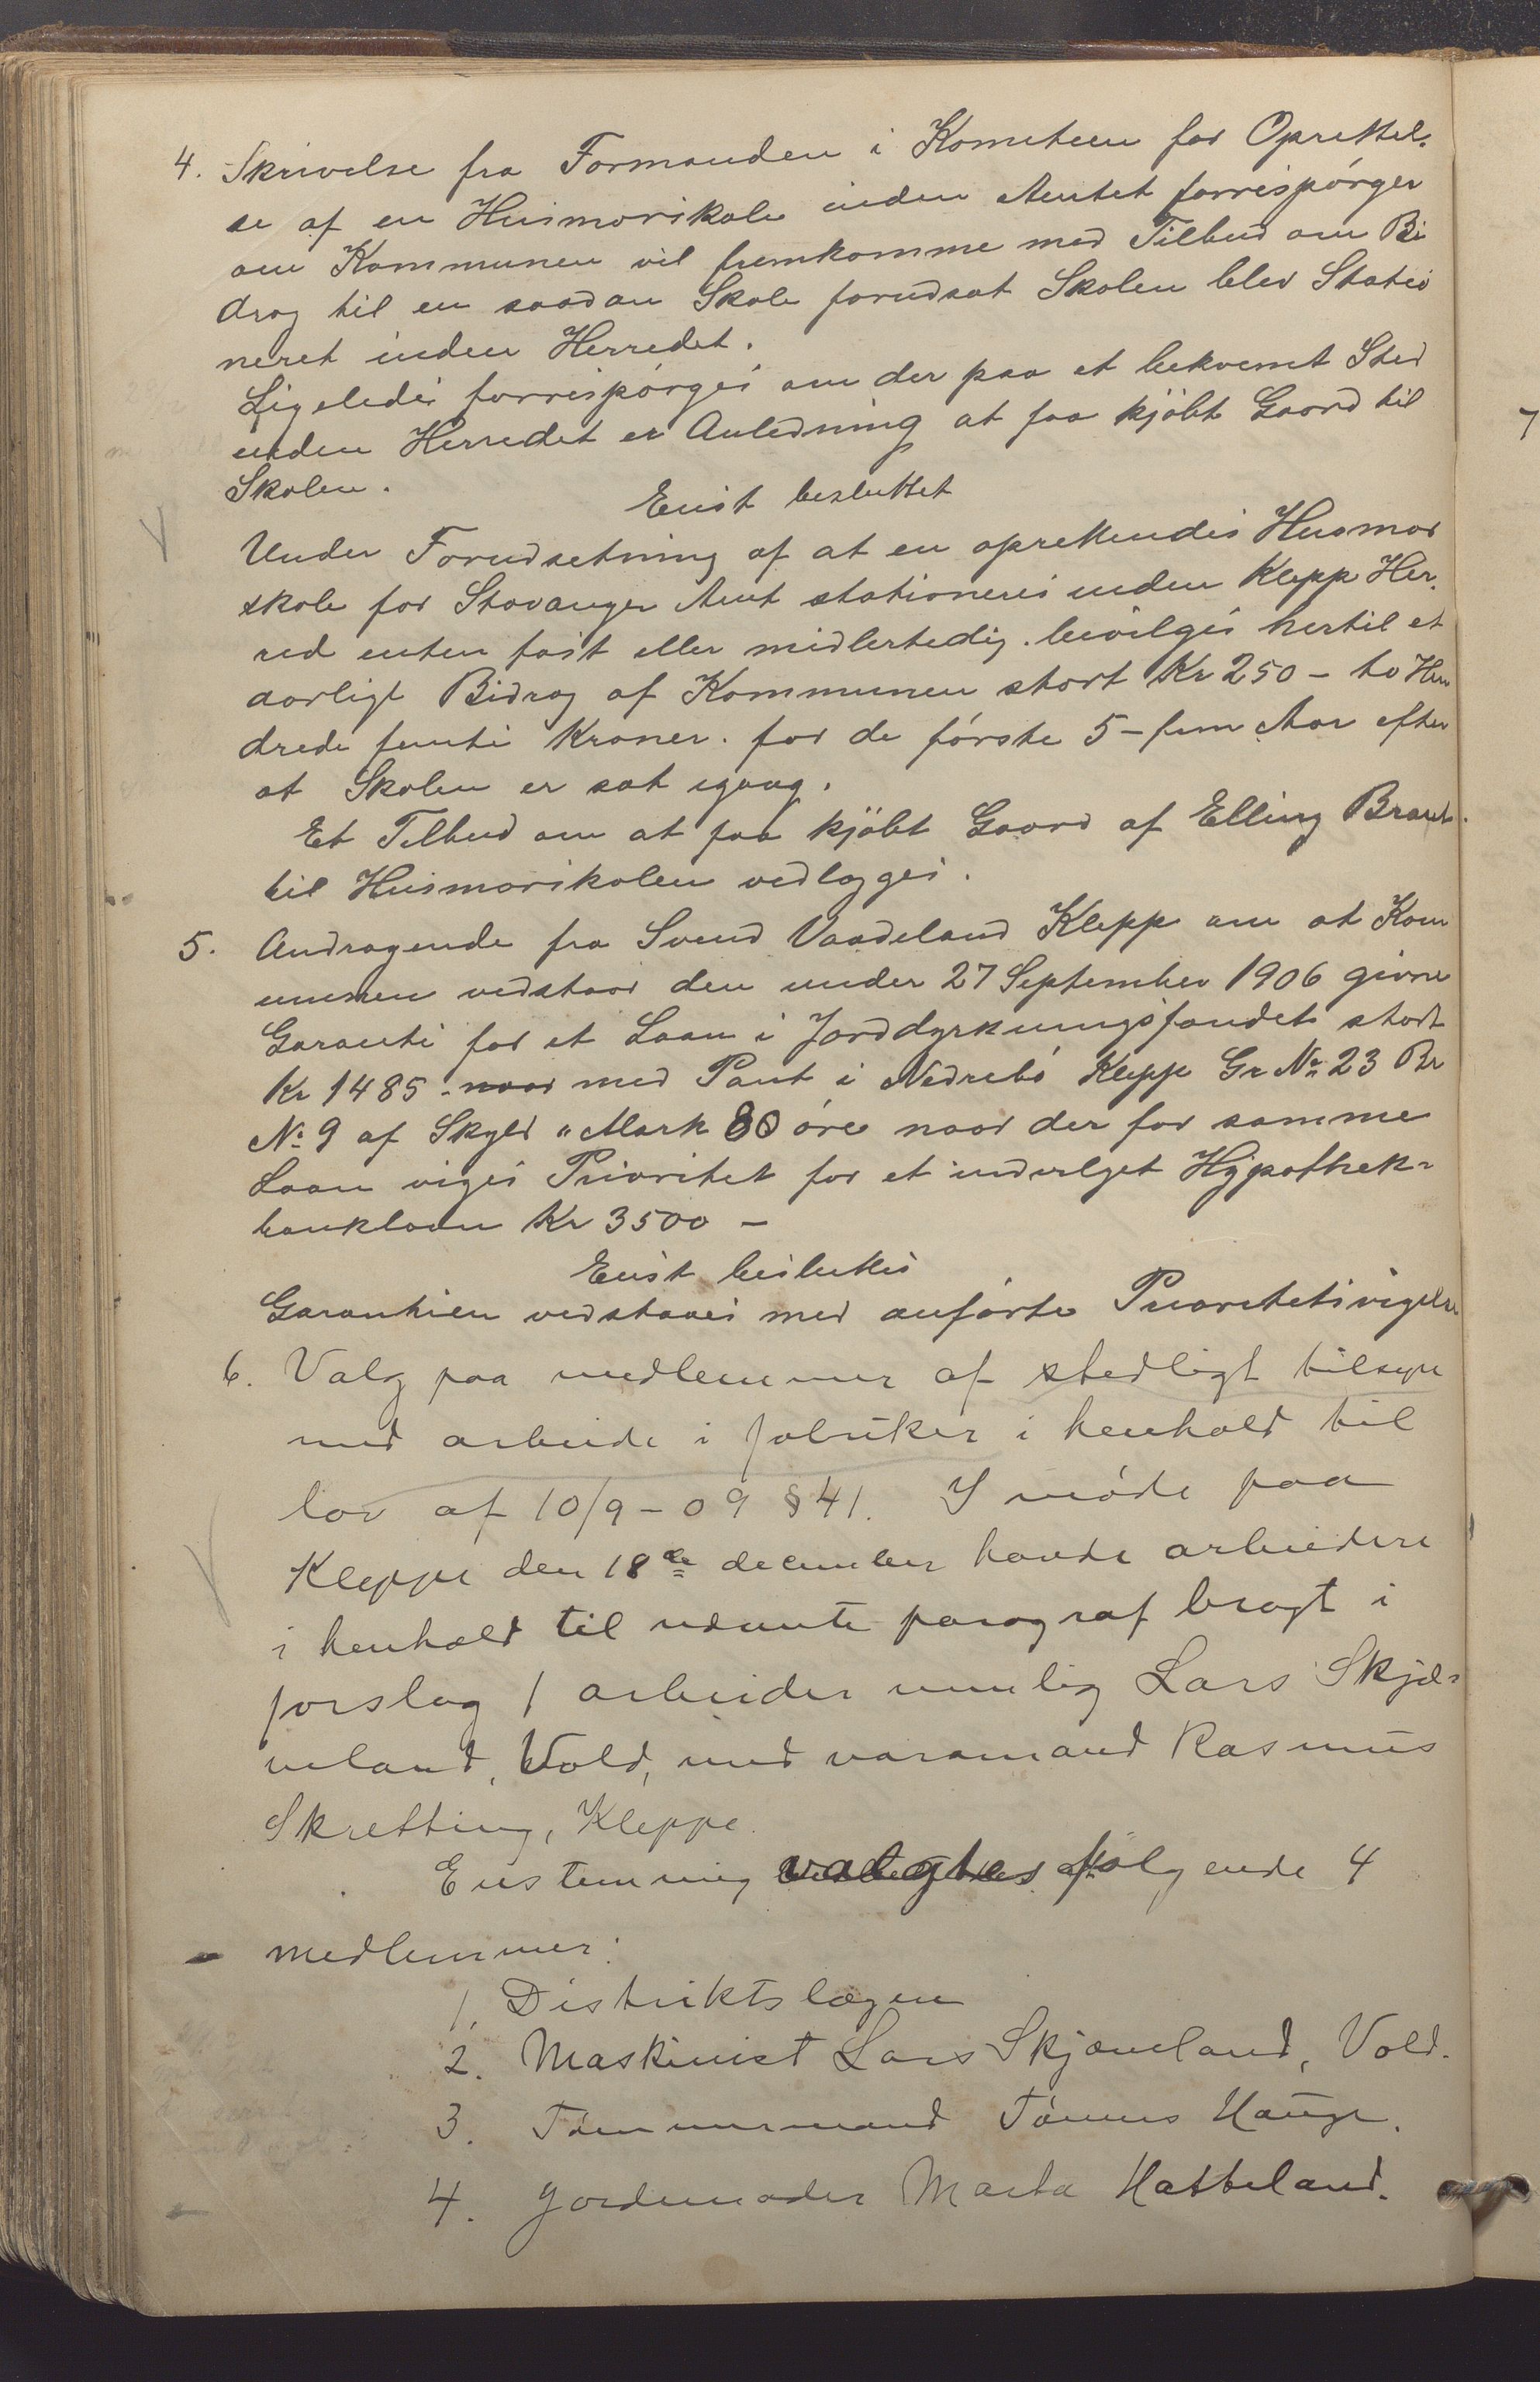 4. Skrivelse fra Formanden i Kometeen for Oprettel-
se af en Husmorskole inden Amtet forrespørger
om Kommunen vil fremkomme med Tilbud om Bi
drag til en saadan Skole forudsat Skolen blev Statio
neret inden Herredet.
Ligeledes forrespørges om der paa et bekvemt Sted
inden Herredet er Anledning at faa kjøbt Gaard til
Skolen.
Enst besluttet
Under Forudsetning af at en oprettendes Husmor
skole for Stavanger Amt stationeres inden Klepp Her-
red enten fast eller midlertedig. bevilges hertil et
aarligt Bidrag af Kommunen stort Kr 250 – to Hun
drede femti Kroner. for de første 5 – fem Aar efter
at Skolen er sat igang.
Et Tilbud om at faa kjöbt Gaard af Elling Braut.
til Husmorskolen vedlægges.
5. Andragende fra Svend Vaadeland Klepp om at Kom
munen vedstaar den under 27 September 1906 givne
Garanti for et Laan i Jorddyrkningsfondet stort
Kr 1485 - naar med Pant i Nedrebø Klepp Gr No 23 Br
No 9 af Skyld " Mark 80 øre naar der for samme
Laan viges Prioritet for et indvilget Hypothek-
banklaan Kr 3500 –
Enst besluttes
Garantien vedstaaes med anførte Prioritetsvigelse
6. Valg paa medlemmer af stedligt tilsyn
med arbeide i fabriker i henhold til
lov af 10/9 – 09 § 41. I møde paa
Kleppe den 18de december havde arbeidere
i henhold til nævnte paragraf bragt i
forslag 1 arbeider nemlig Lars Skjæ-
veland, Vold, med varamand Rasmus
Skretting, Kleppe.
Enstemmig valgtes følgende 4
medlemmer:
1. Distriktslægen
2. Maskinist Lars Skjæveland, Vold.
3. Tømmermand Tønnes Hauge.
4. Jordemoder Marta Hatteland.
7